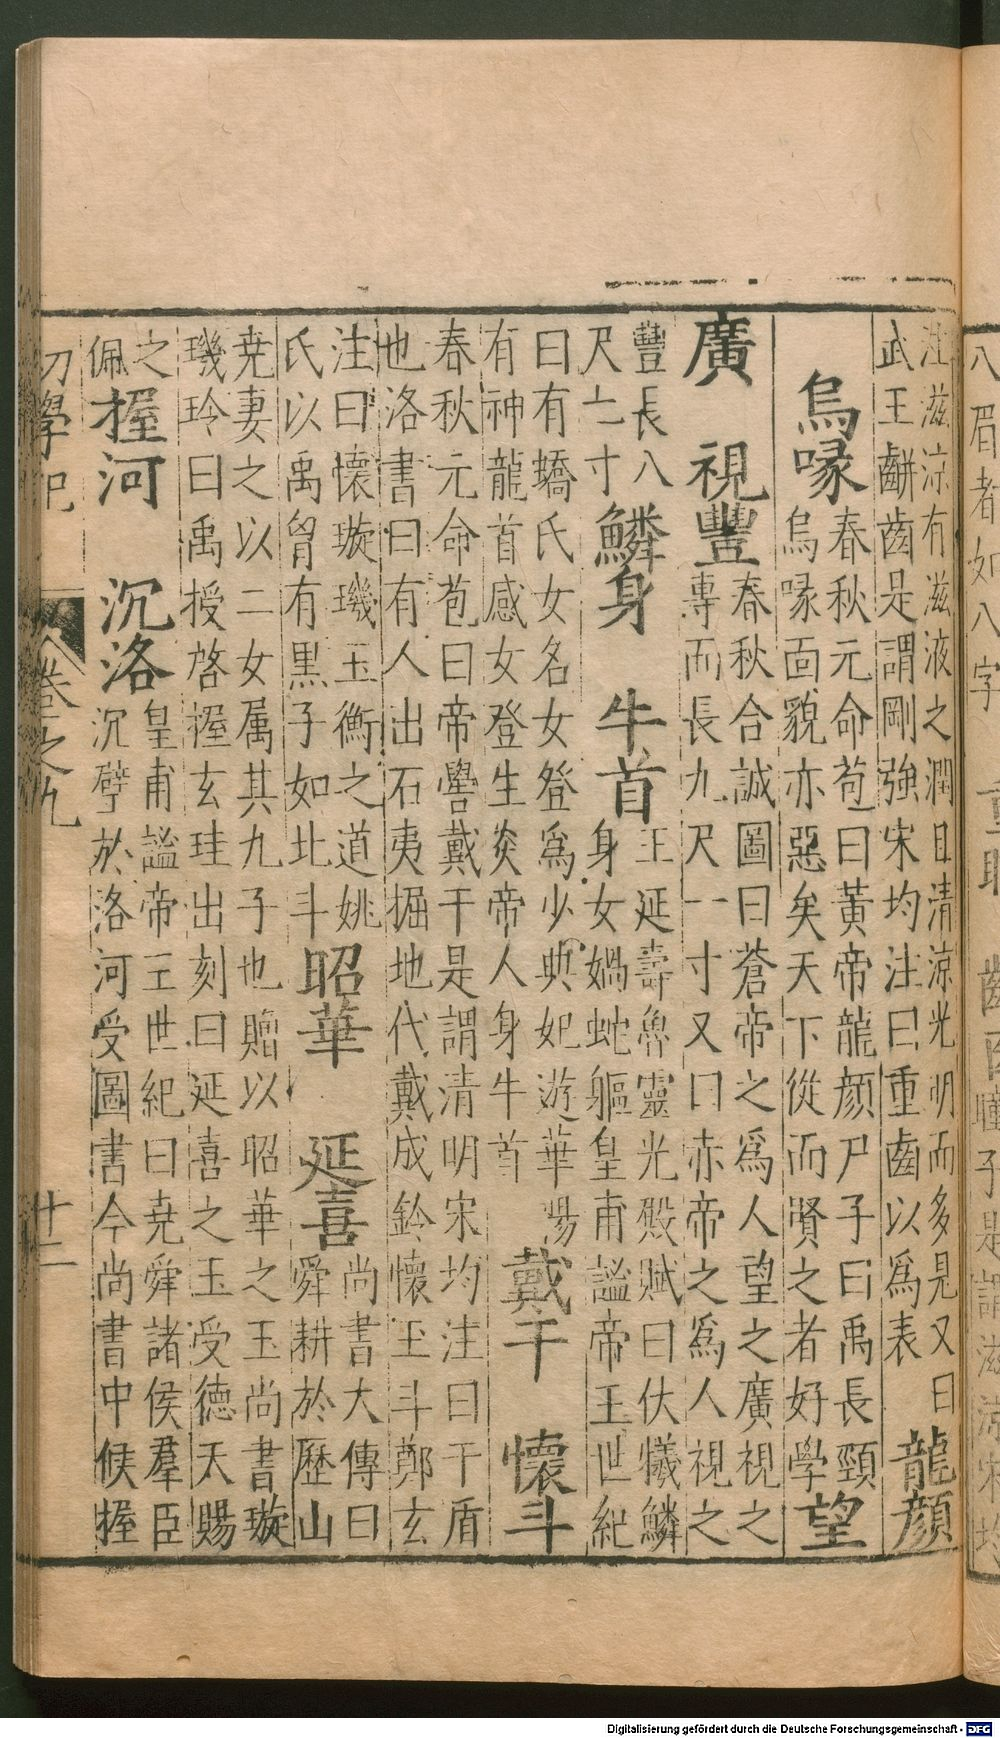 八眉者如八字
注滋凉有滋液之潤且清凉光明而多見又曰
武王齒是謂剛強宋均注曰重齒以爲表
龍顏
烏喙
春秋元命苞曰黃帝龍顏尸子曰禹長頸
烏喙面貌亦惡矣天下從而賢之者好學
望
廣 視豐
春秋合誠圖曰蒼帝之爲人望之廣視之
專而長九尺一寸又曰赤帝之爲人視之
豐長八
尺七寸
鱗身 牛首
王延壽魯靈光殿賦曰伏犧鱗
身女媧蛇軀皇甫謐帝王世紀
曰有蟜氏女名女登爲少典妃遊華陽
有神龍首感女登生炎帝人身牛首
戴干 懷斗
春秋元命苞曰帝嚳戴干是謂清明宋均注曰干盾
也洛書曰有人出石夷掘地代戴成鈐懷玉斗鄭玄
注曰懷璇璣玉衡之道姚
氏以禹胷有黑子如北斗
昭華 延喜
尚書大傳曰
舜耕於歷山
堯妻之以二女属其九子也贈以昭華之玉尚書璇
璣玲曰禹授啓握玄珪出刻曰延喜之玉受德天賜
之
佩
握河 沉洛
皇甫謐帝王世紀曰堯舜諸侯羣臣
沉璧於洛河受圖書今尚書中候握
初學記 卷之九 廿二
Digitalisierung gefördert durch die Deutsche Forschungsgemeinschaft - DFG